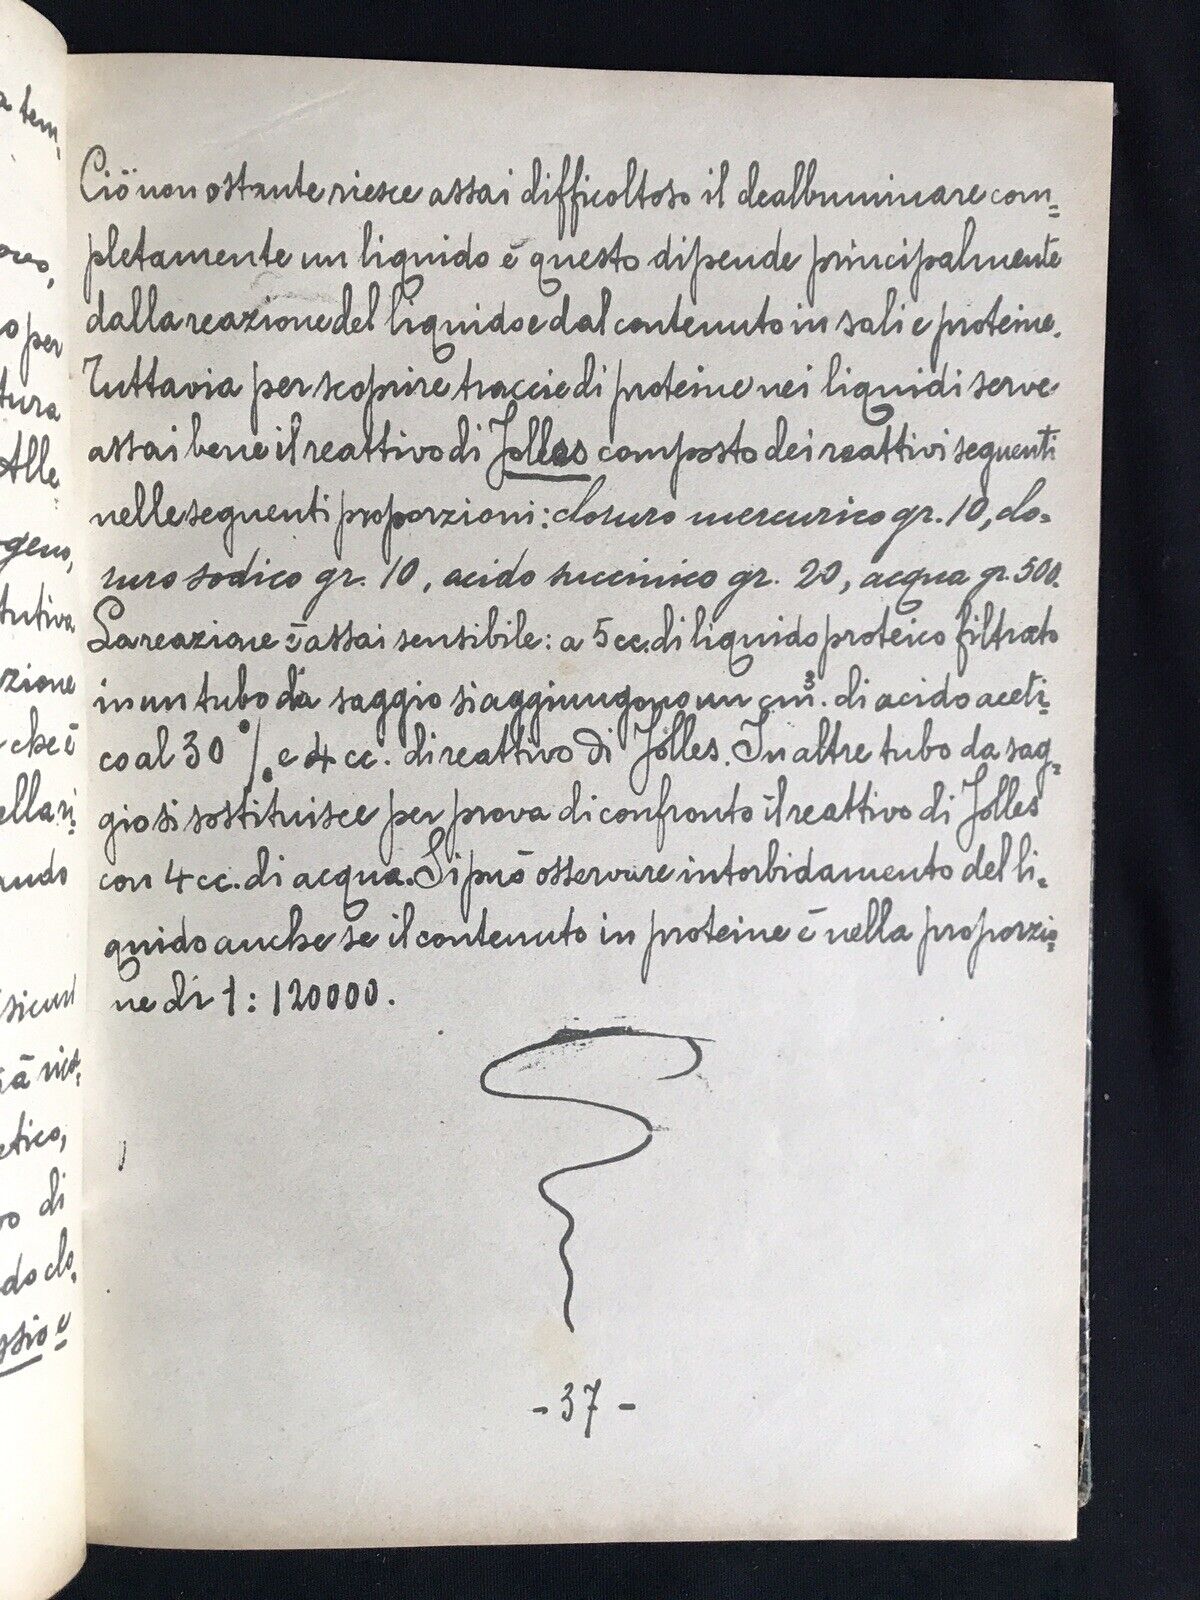 Ciò non ostante riesce assai difficoltoso il dealbuminare com=
pletamente un liquido e questo dipende principalmente
dalla reazione del liquido e dal contenuto in sali e proteine.
Tuttavia per scoprire traccie di proteine nei liquidi serve
assai bene il reattivo di Jolles composto dei reattivi seguenti
nelle seguenti proporzioni: cloruro mercurico gr. 10, clo=
ruro sodico gr. 10, acido succinico gr. 20, acqua gr. 500.
La reazione è assai sensibile: a 5 cc. di liquido proteico filtrato
in un tubo da saggio si aggiungono un cm³. di acido aceti=
co al 30 % e 4 cc. di reattivo di Jolles. In altre tubo da sag=
gio si sostituisce per prova di confronto il reattivo di Jolles
con 4 cc. di acqua. Si può osservare intorbidamento del li=
quido anche se il contenuto in proteine è nella proporzio=
ne di 1: 120000.
- 37 -
a tem=
o per
tura
Alle
geno,
tutiva
zione
che è
ellari=
etico,
di
do clo=
ssio e